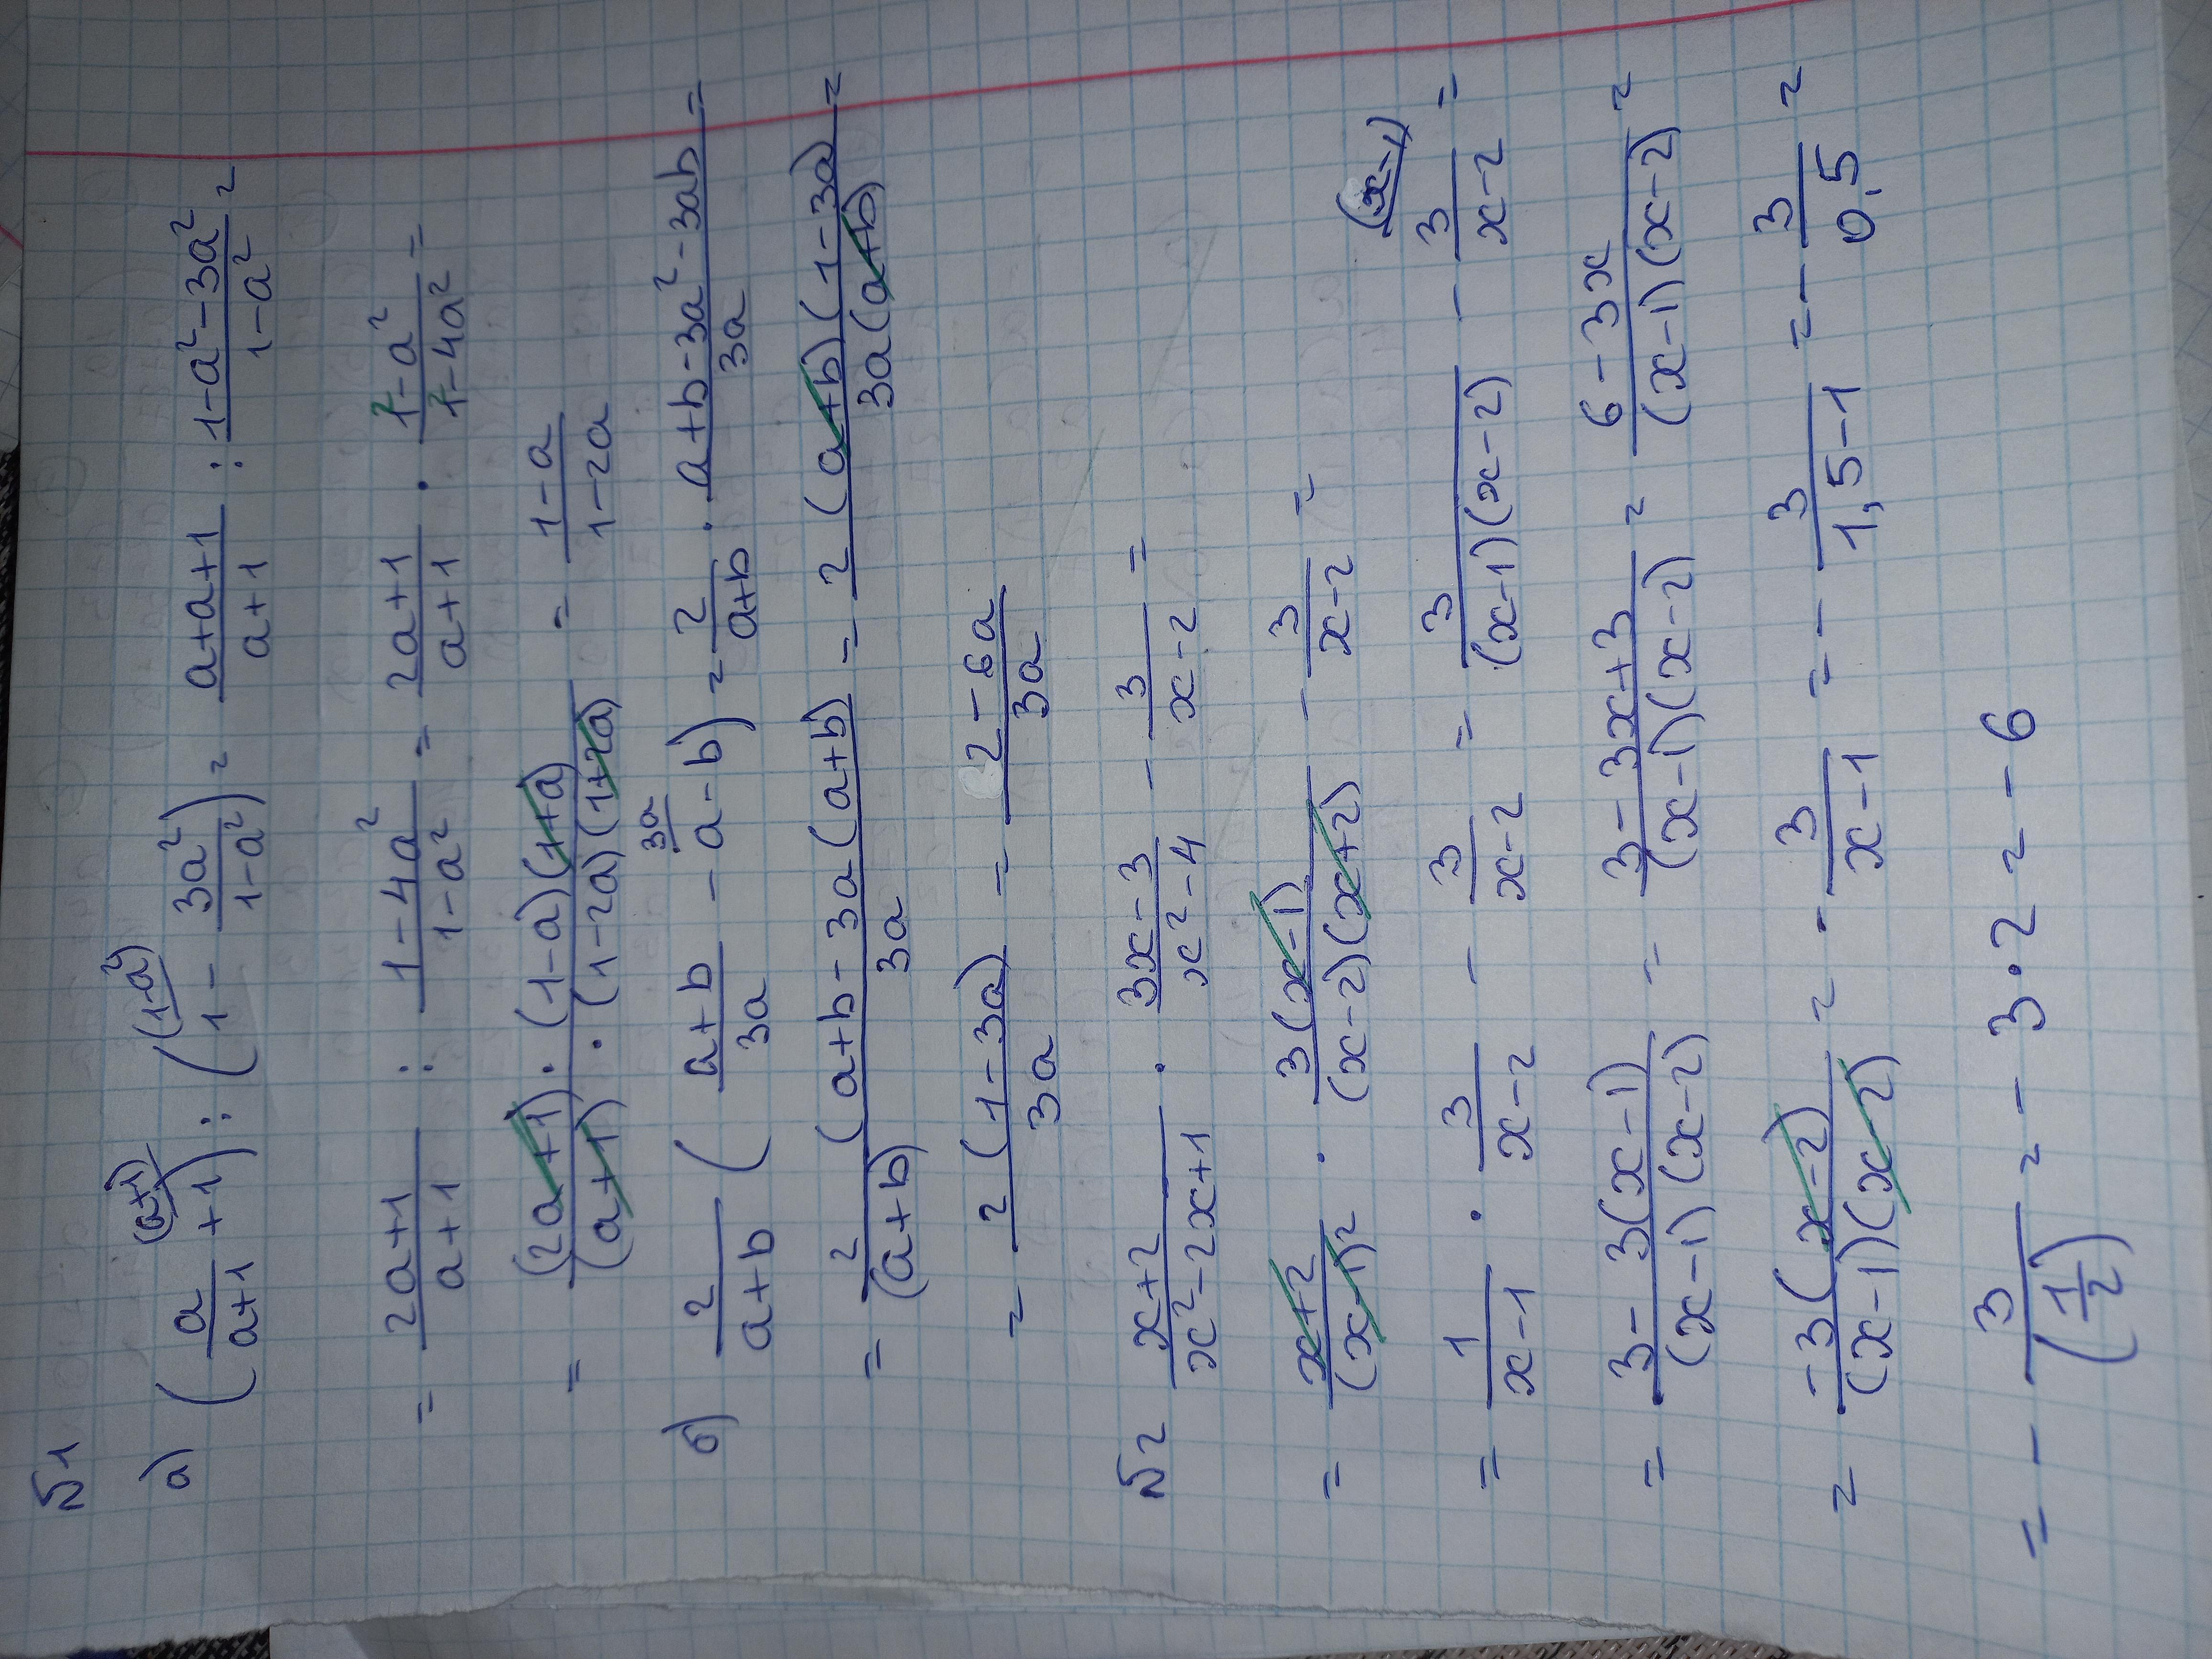 №1
а) (a/(a+1) + 1^(a+1)) : (1^(1-a²) - 3a²/(1-a²)) = (a+a+1)/(a+1) : (1-a²-3a²)/(1-a²) =
= (2a+1)/(a+1) : (1-4a²)/(1-a²) = (2a+1)/(a+1) · (1-a²)/(1-4a²) =
= ((2a+1)·(1-a)(1+a))/((a+1)·(1-2a)(1+2a)) = (1-a)/(1-2a)
б) 2/(a+b) ((a+b)/3a - a-b^(3a)) = 2/(a+b) · (a+b-3a²-3ab)/3a =
= 2/(a+b) (a+b-3a(a+b))/3a = 2(a+b)(1-3a)/3a(a+b) =
= 2(1-3a)/3a = (2-6a)/3a
№2 (x+2)/(x²-2x+1) · (3x-3)/(x²-4) - 3/(x-2) =
= (x+2)/(x-1)² · 3(x-1)/((x-2)(x+2)) - 3/(x-2) =
= 1/(x-1) · 3/(x-2) - 3/(x-2) = 3/((x-1)(x-2)) - 3/(x-2)^(x-1) =
= (3-3(x-1))/((x-1)(x-2)) = (3-3x+3)/((x-1)(x-2)) = (6-3x)/((x-1)(x-2)) =
= -3(x-2)/((x-1)(x-2)) = - 3/(x-1) = - 3/(1,5-1) = - 3/0,5 =
= - 3/(1/2) = - 3·2 = -6